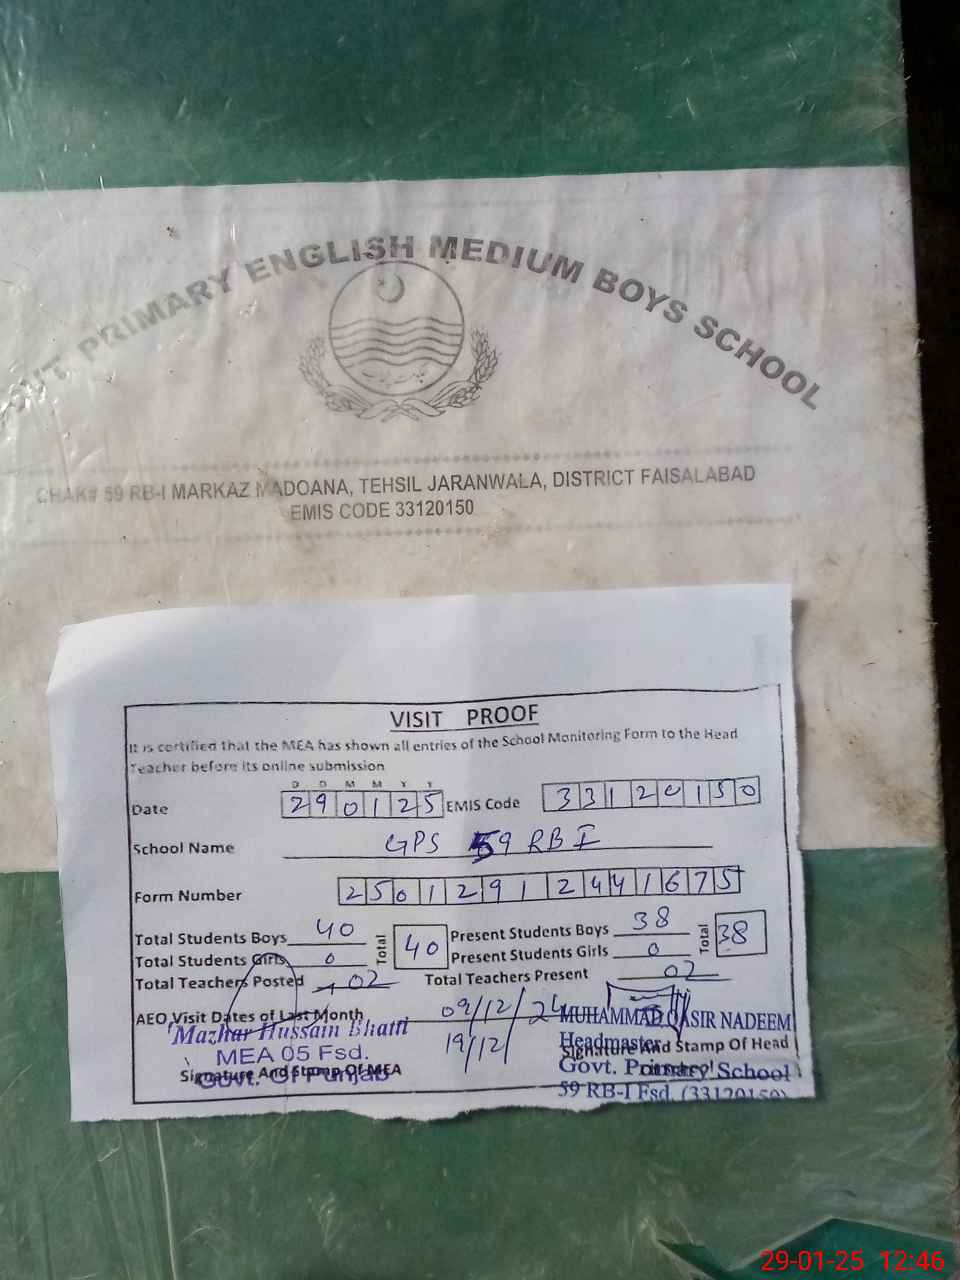 PRIMARY ENGLISH MEDIUM BOYS SCHOOL
CHAK# 59 RB-I MARKAZ MADOANA, TEHSIL JARANWALA, DISTRICT FAISALABAD
EMIS CODE 33120150
VISIT PROOF
It is certified that the MEA has shown all entries of the School Monitoring Form to the Head
Teacher before its online submission
D D M M Y Y
Date 290125 EMIS Code 33120150
School Name GPS 59 RB I
Form Number 25012912441675
Total Students Boys 40 Total 40 Present Students Boys 38 Total 38
Total Students Girls 0 Present Students Girls 0
Total Teachers Posted 02 Total Teachers Present 02
AEO Visit Dates of Last Month 09/12/24
19/12/
Mazhar Hussain Bhatti
MEA 05 Fsd.
Govt. Of Punjab
Signature And Stamp Of MEA
MUHAMMAD QASIR NADEEM
Headmaster
Signature And Stamp Of Head
Govt. Primary School
59 RB-I Fsd. (33120150)
29-01-25 12:46